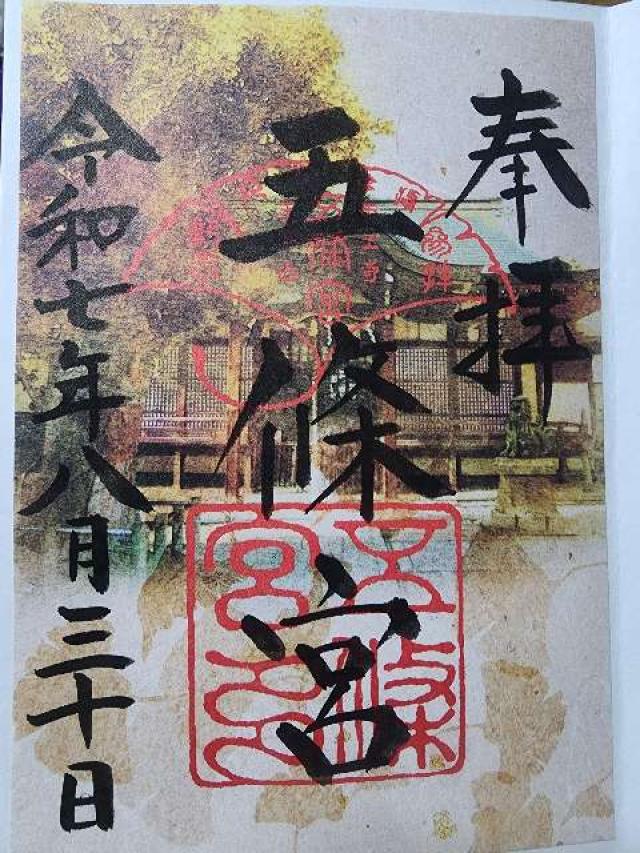 奉拝
五條宮
令和七年八月三十日
五條宮之印